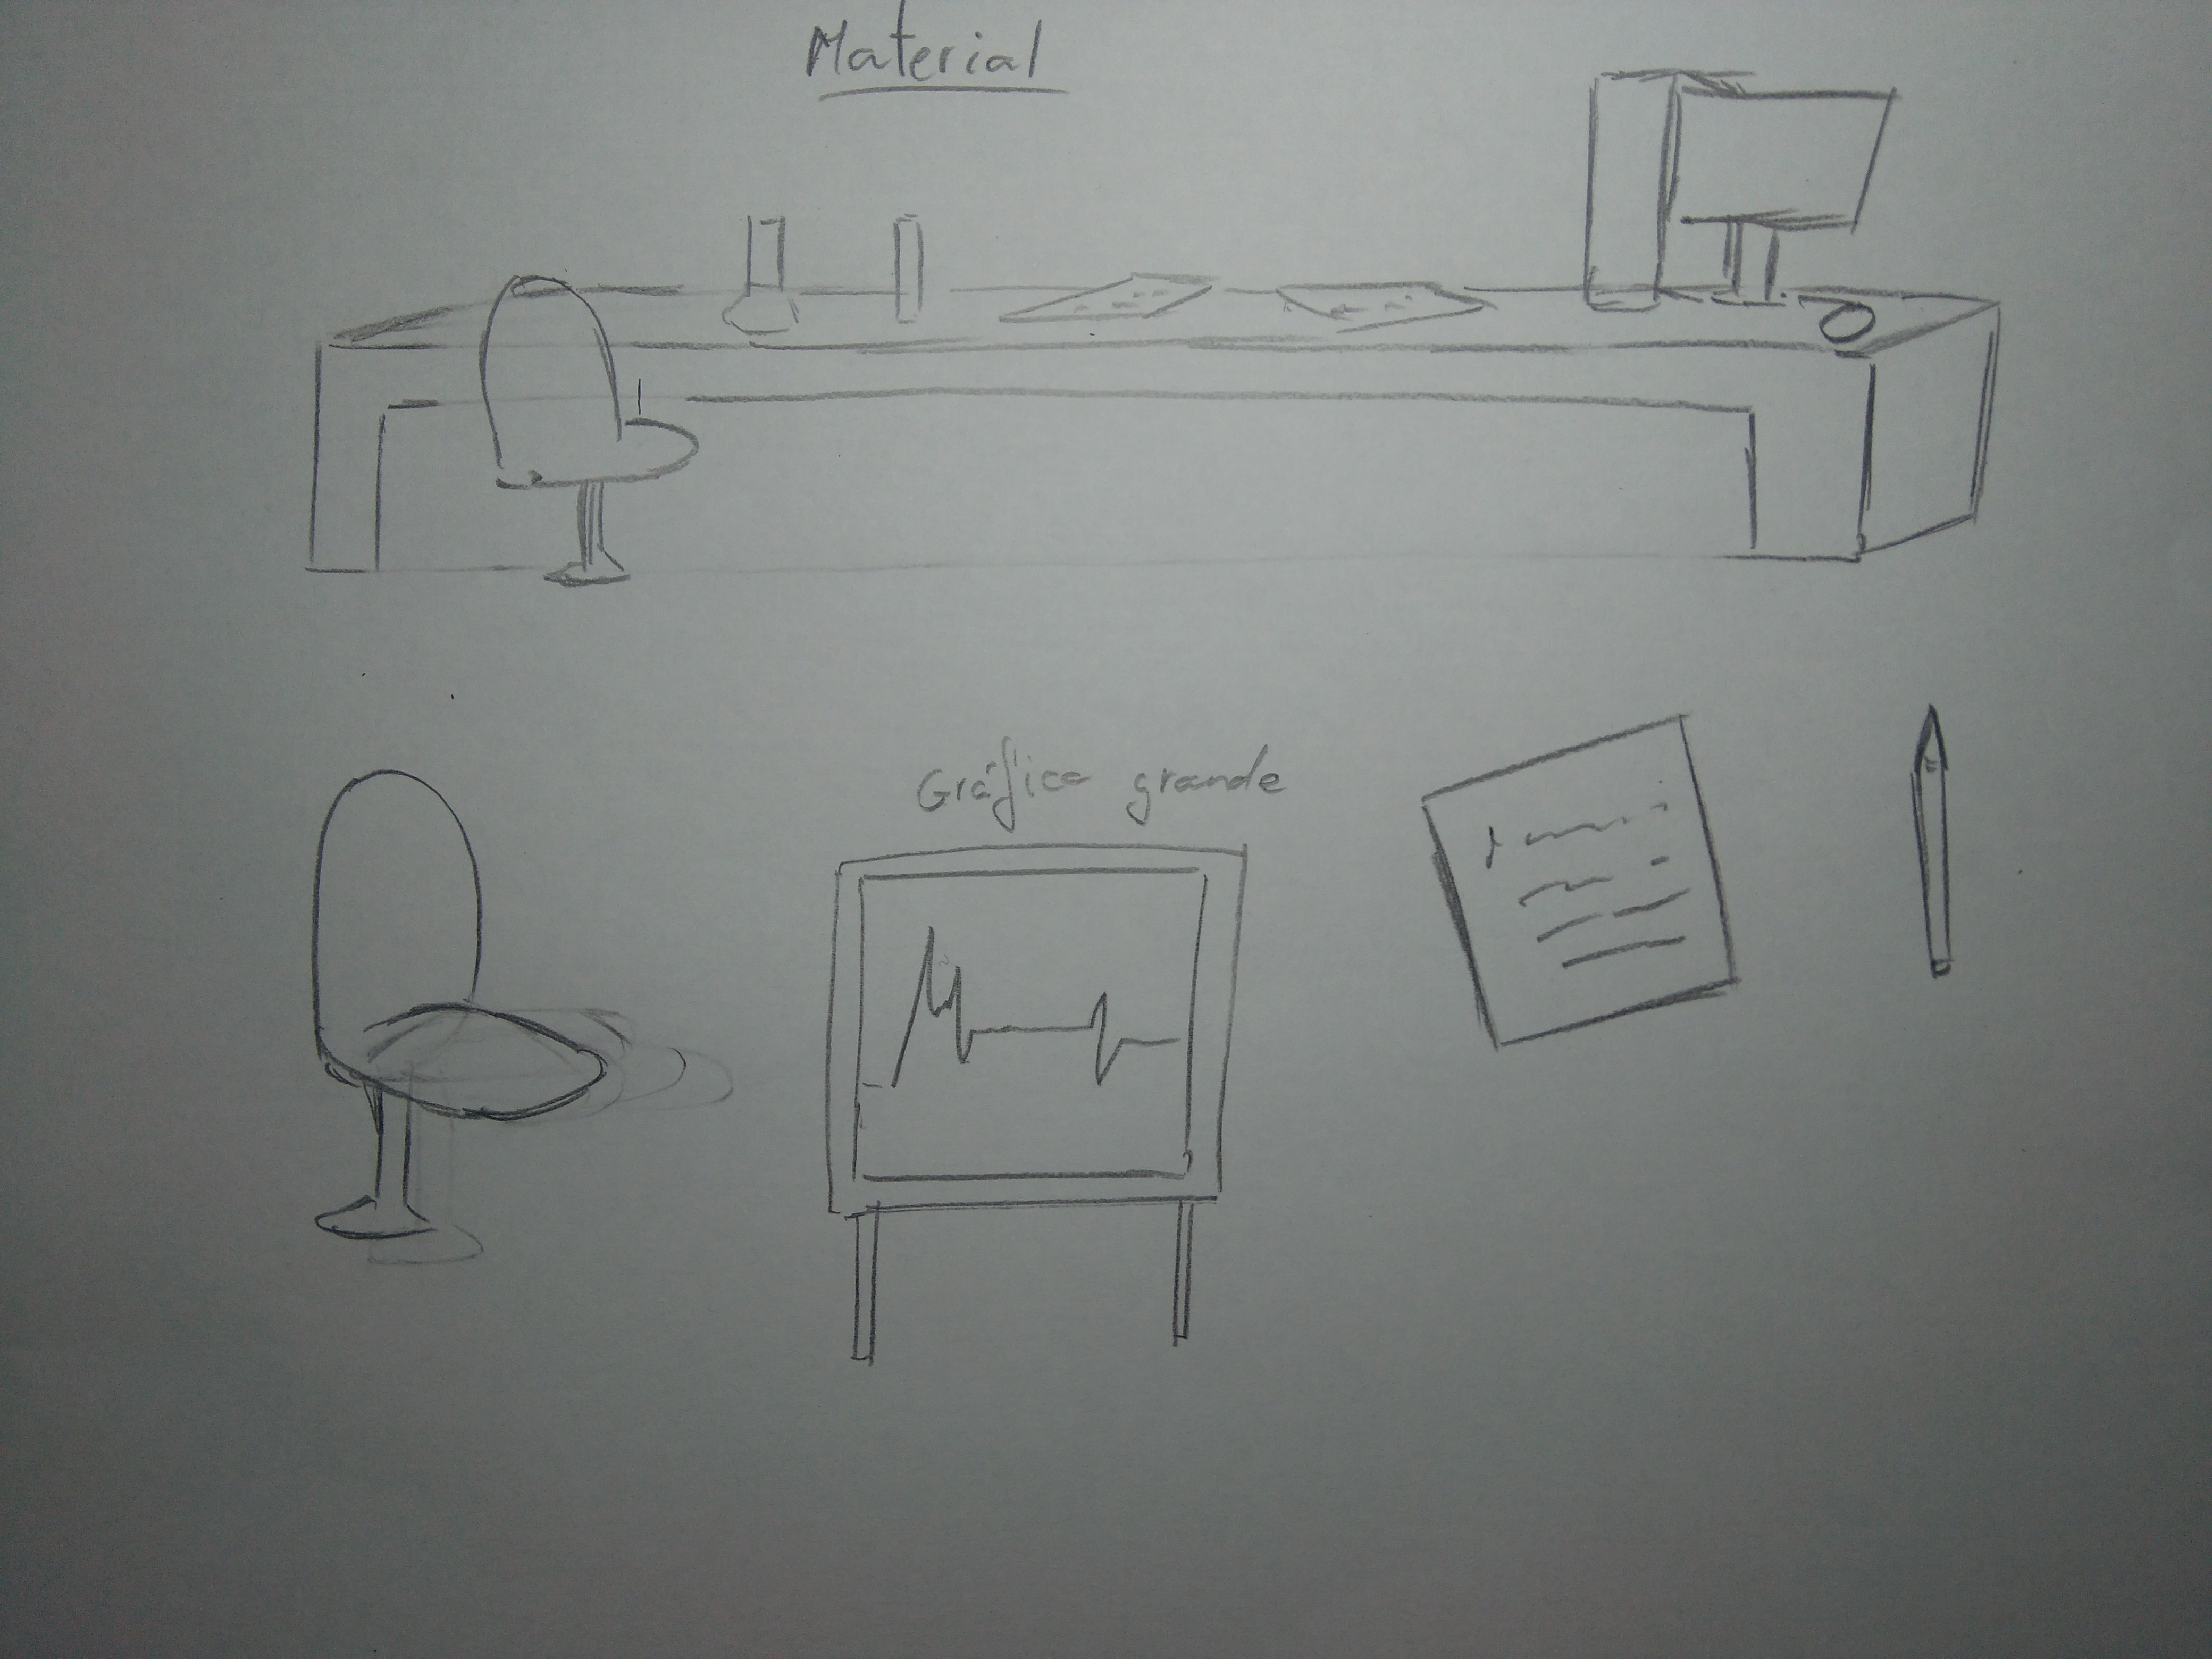 Material
Gráfico grande